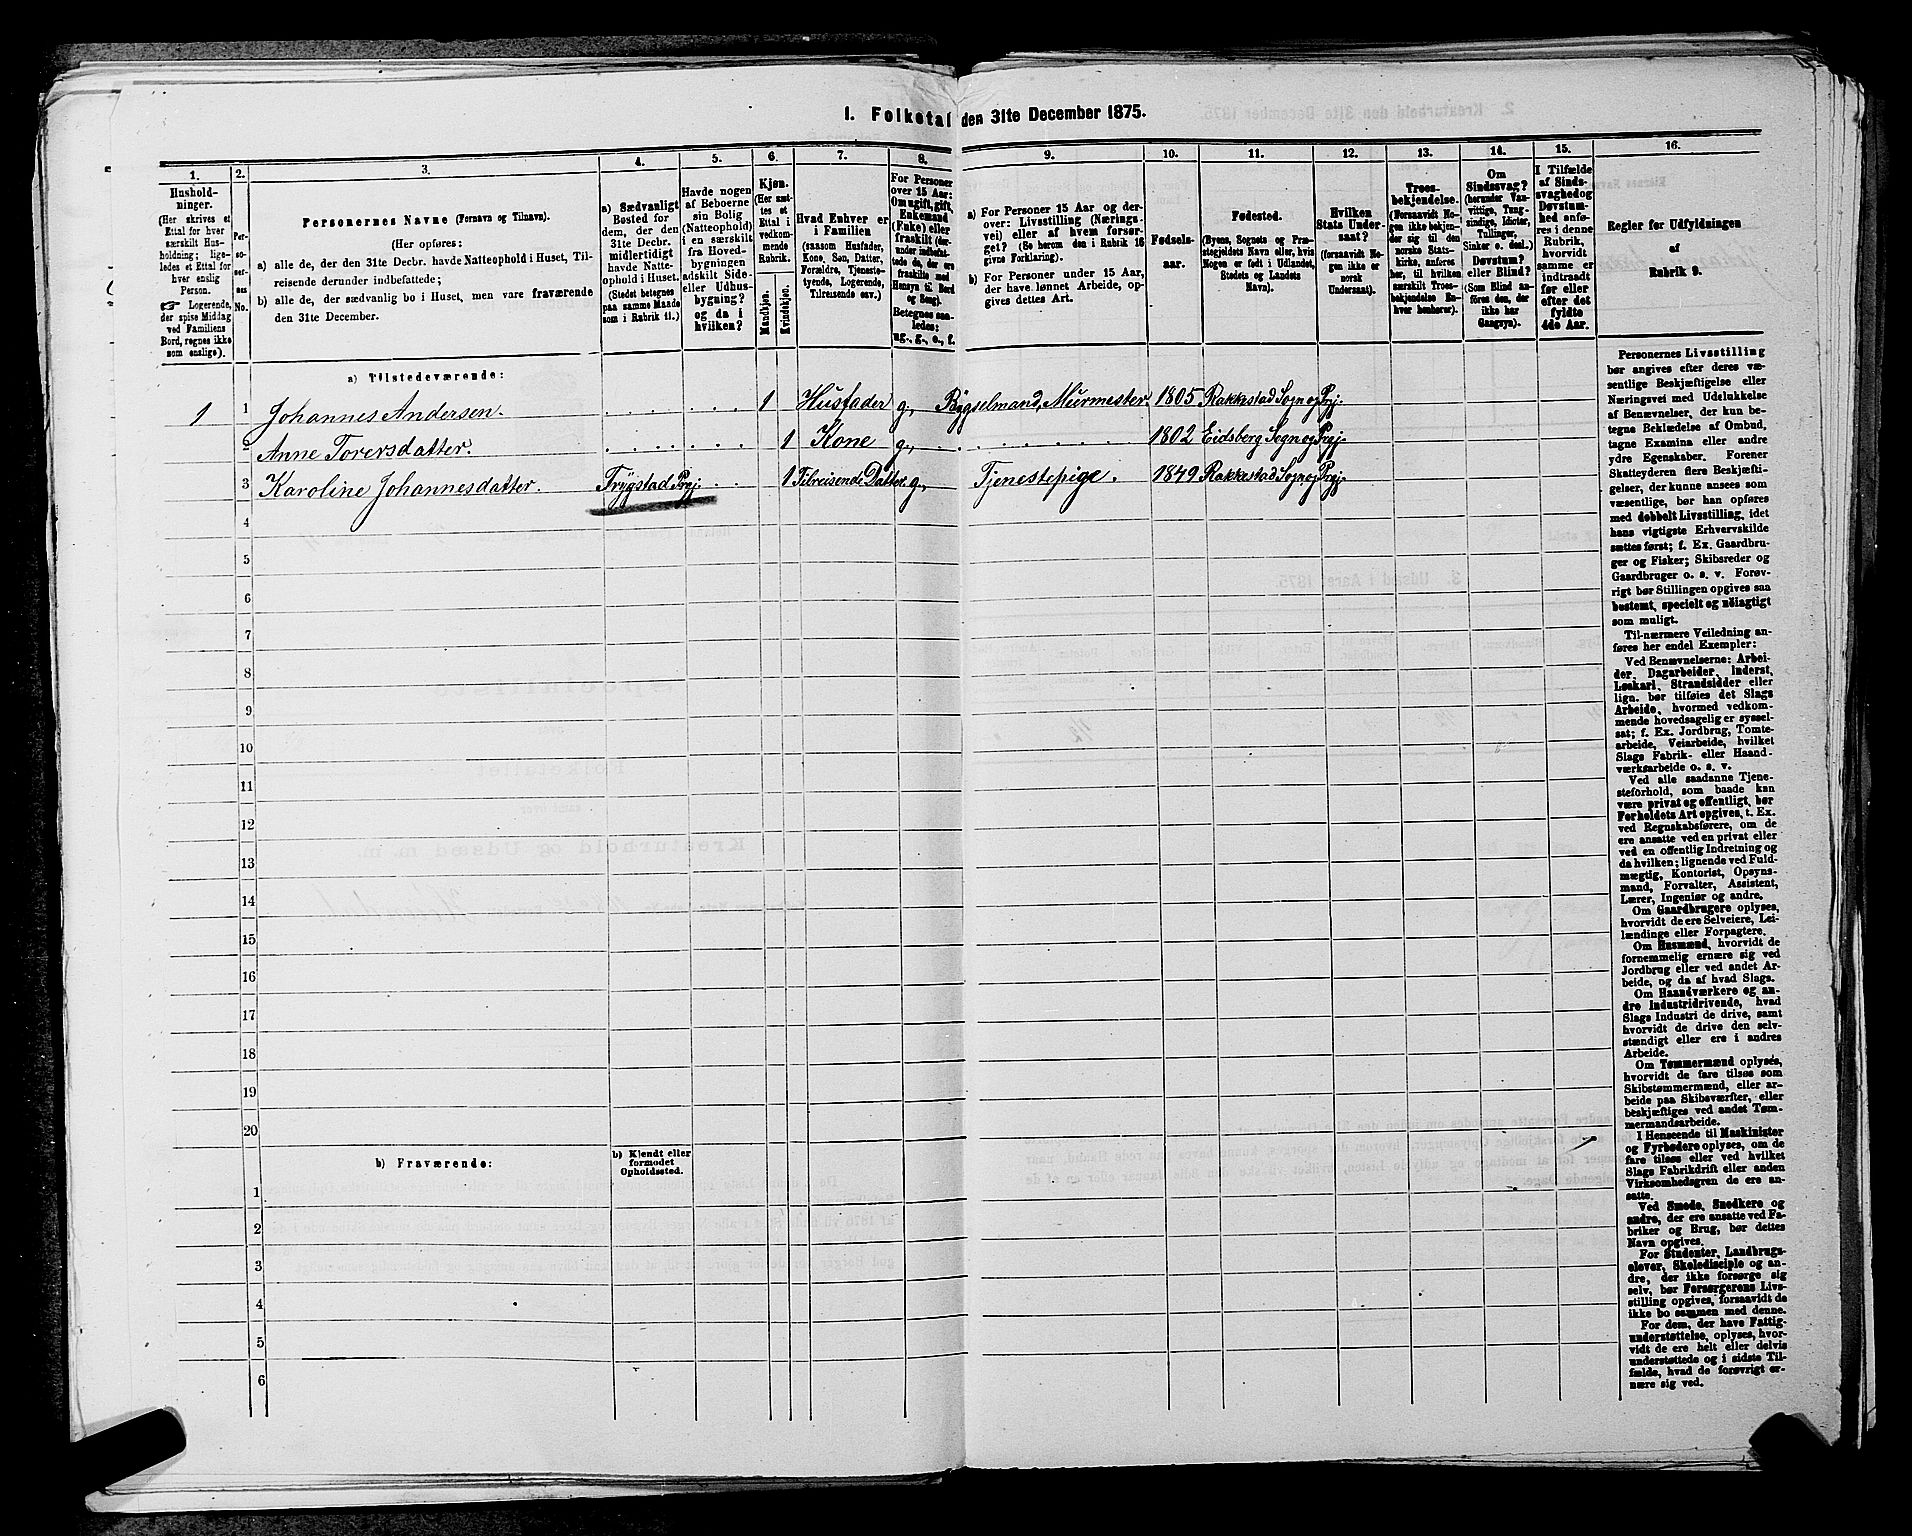 I. Folketal den 31te December 1875.
1. 2. 3. 4. 5. 6. 7. 8. 9. 10. 11. 12. 13. 14. 15. 16.
Husholdninger.
(Her skrives et
Ettal for hver
særskilt Husholdning;
ligeledes et Ettal for
hver enslig
Person.
☞ Logerende,
der spise Middag
ved Familiens
Bord, regnes ikke
som enslige).
Personernes No.
Personernes Navne (Fornavn og Tilnavn).
(Her opføres:
a) alle de, der den 31te Decbr. havde Natteophold i Huset, Tilreisende derunder indbefattede;
b) alle de, der sædvanlig bo i Huset, men vare fraværende
den 31te December.
a) Sædvanligt
Bosted for
dem, der den
31te Decbr.
midlertidigt
havde Natteophold i Huset.
(Stedet betegnes
paa samme Maade
som i Rubrik 11.)
Havde nogen
af Beboerne
sin Bolig
(Natteophold)
i en særskilt
fra Hovedbygningen
adskilt Side-
eller Udhusbygning?
og da i
hvilken?
Kjøn.
(Her sættes et
Ettal i
vedkommende
Rubrik.
Mandkjøn.
Kvindekjøn.
Hvad Enhver er
i Familien
(saasom Husfader,
Kone, Søn, Datter,
Forældre, Tjenestetyende, Logerende,
Tilreisende osv.)
For Personer
over 15 Aar:
Om ugift, gift,
Enkemand
(Enke) eller
fraskilt (derunder indbefattede de, der ere
fraskilte med
Hensyn til Bord
og Seng).
Betegnes saaledes:
ug., g., e., f.
a) For Personer 15 Aar og derover: Livsstilling (Næringsvei) eller af hvem forsørget? (Se herom den i Rubrik 16
givne Forklaring).
b) For Personer under 15 Aar,
der have lønnet Arbeide, opgives dettes Art.
Fødselsaar.
Fødested.
(Byens, Sognets og Præstegjeldets Navn eller, hvis
Nogen er født i Udlandet,
Stedets og Landets
Navn).
Hvilken
Stats Undersaat?
(forsaavidt Nogen ikke er
norsk
Undersaat).
Troesbekjendelse.
(Forsaavidt Nogen ikke bekjender sig til den
norske Statskirke, anføres
her, til hvilken
særskilt Troesbekjendelse Enhver henhører).
Om
Sindssvag?
(herunder Vanvittige, Tungsindige, Idioter,
Tullinger,
Sinker o. desl.)
Døvstum?
eller Blind?
(Som Blind anføres den, der
ikke har
Gangsyn).
I Tilfælde
af Sindssvaghed og
Døvstumhed anføres i denne
Rubrik,
hvorvidt
samme er
indtraadt
før eller
efter det
fyldte
4de Aar.
Regler for Udfyldningen
af
Rubrik 9.
a) Tilstedeværende:
1 1 Johannes Andersen. 1 Husfader g, Bygselmand, Murmester 1805 Rakkestad Sogn og Prgj.
2 Anne Torersdatter. 1 Kone g, 1802 Eidsberg Sogn og Prgj.
3 Karoline Johannesdatter. Trygstad Prgj. 1 Tilreisende Datter g, Tjenestepige. 1849 Rakkestad Sogn og Prgj.
4
5
6
7
8
9
10
11
12
13
14
15
16
17
18
19
20
b) Fraværende:
b) Kjendt eller
formodet
Opholdssted.
1
2
3
4
5
6
Personernes Livsstilling
bør angives efter deres væsentlige Beskjæftigelse eller
Næringsvei med Udelukkelse
af Benævnelser, der kun betegne Beklædelse af Ombud,
tagne Examina eller andre
ydre Egenskaber. Forener
Skatteyderen flere Beskjæftigelser, der kunne ansees som
væsentlige, bør han opføres
med dobbelt Livsstilling, idet
hans vigtigste Erhvervskilde
sættes først; f. Ex. Gaardbruger og Fisker; Skibsreder og
Gaardbruger o. s. v. Forøvrigt bør Stillingen opgives saa
bestemt, specielt og nöiagtigt
som muligt.
Til nærmere Veiledning anføres her endel Exempler:
Ved Benævnelserne: Arbeider, Dagarbeider, Inderst,
Løskarl, Strandsidder eller
lign. bør tilføies det Slags
Arbeide, hvormed vedkommende hovedsagelig er sysselsat; f. Ex. Jordbrug, Tomtearbeide, Veiarbeide, hvilket
Slags Fabrik- eller Haandværksarbeide o. s. v.
Ved alle saadanne Tjenesteforhold, som baade kan
være privat og offentligt, bør
Forholdets Art opgives, t. Ex.
ved Regnskabsførere, om de
ere ansatte ved en privat eller
ved en offentlig Indretning og
da hvilken; lignende ved Fuldmægtig, Kontorist, Opsynsmand, Forvalter, Assistent,
Lærer, Ingeniør og andre.
Om Gaardbrugere oplyses,
hvorvidt de ere Selveiere, Leilændinge eller Forpagtere.
Om Husmænd, hvorvidt de
fornemmelig ernære sig ved
Jordbrug eller ved andet Arbeide, og da af hvad Slags.
Om Haandværkere og andre Industridrivende, hvad
Slags Industri de drive, samt
hvorvidt de drive den selvstændigt eller ere i andres
Arbeide.
Om Tømmermænd oplyses,
hvorvidt de fare tilsøs som
Skibstømmermænd, eller arbeide paa Skibsværfter, eller
beskjæftiges ved andet Tømmermandsarbeide.
I Henseende til Maskinister
og Fyrbødere oplyses, om de
fare tilsøs eller ved hvilket
Slags Fabrikdrift eller anden
Virksomhedsgren de ere ansatte.
Ved Smede, Snedkere og
andre, der ere ansatte ved Fabriker og Brug, bør dettes
Navn opgives.
For Studenter, Landbrugselever, Skoledisciple og andre, der ikke forsørge sig
selv, bør Forsørgerens Livsstilling opgives, forsaavidt de
ikke bo sammen med denne.
For dem, der have Fattigunderstøttelse, oplyses, hvorvidt de ere helt eller delvis
understøttede og i sidste Tilfælde, hvad de forøvrigt ernære sig ved.